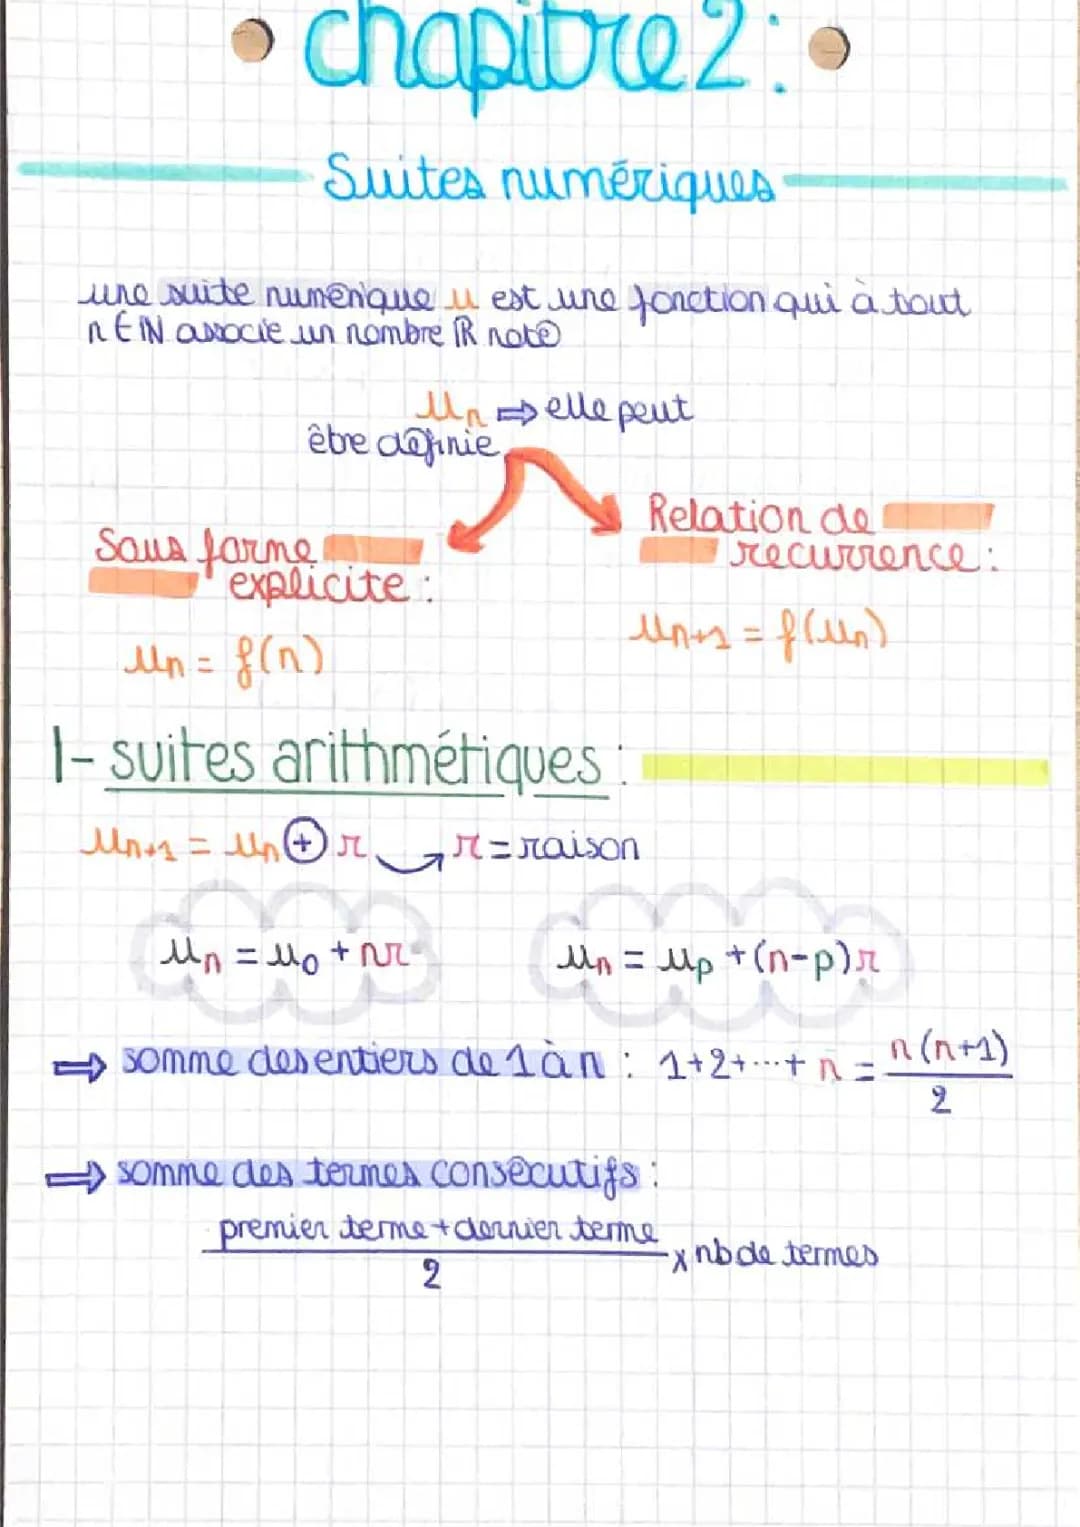 chapitre 2 :
Suites numériques
une suite numérique u est une fonction qui à tout
n ∈ ℕ associe un nombre ℝ noté
Un ⇒ elle peut
être définie
Sous forme
explicite :
Un = f(n)
Relation de
recurrence :
Un+1 = f(Un)
1- suites arithmétiques :
Un+1 = Un ⊕ r → r = raison
Un = U0 + nr
Un = Up + (n-p)r
⇒ somme des entiers de 1 à n : 1+2+...+ n = n(n+1)/2
⇒ somme des termes consécutifs :
premier terme + dernier terme
2
x nb de termes